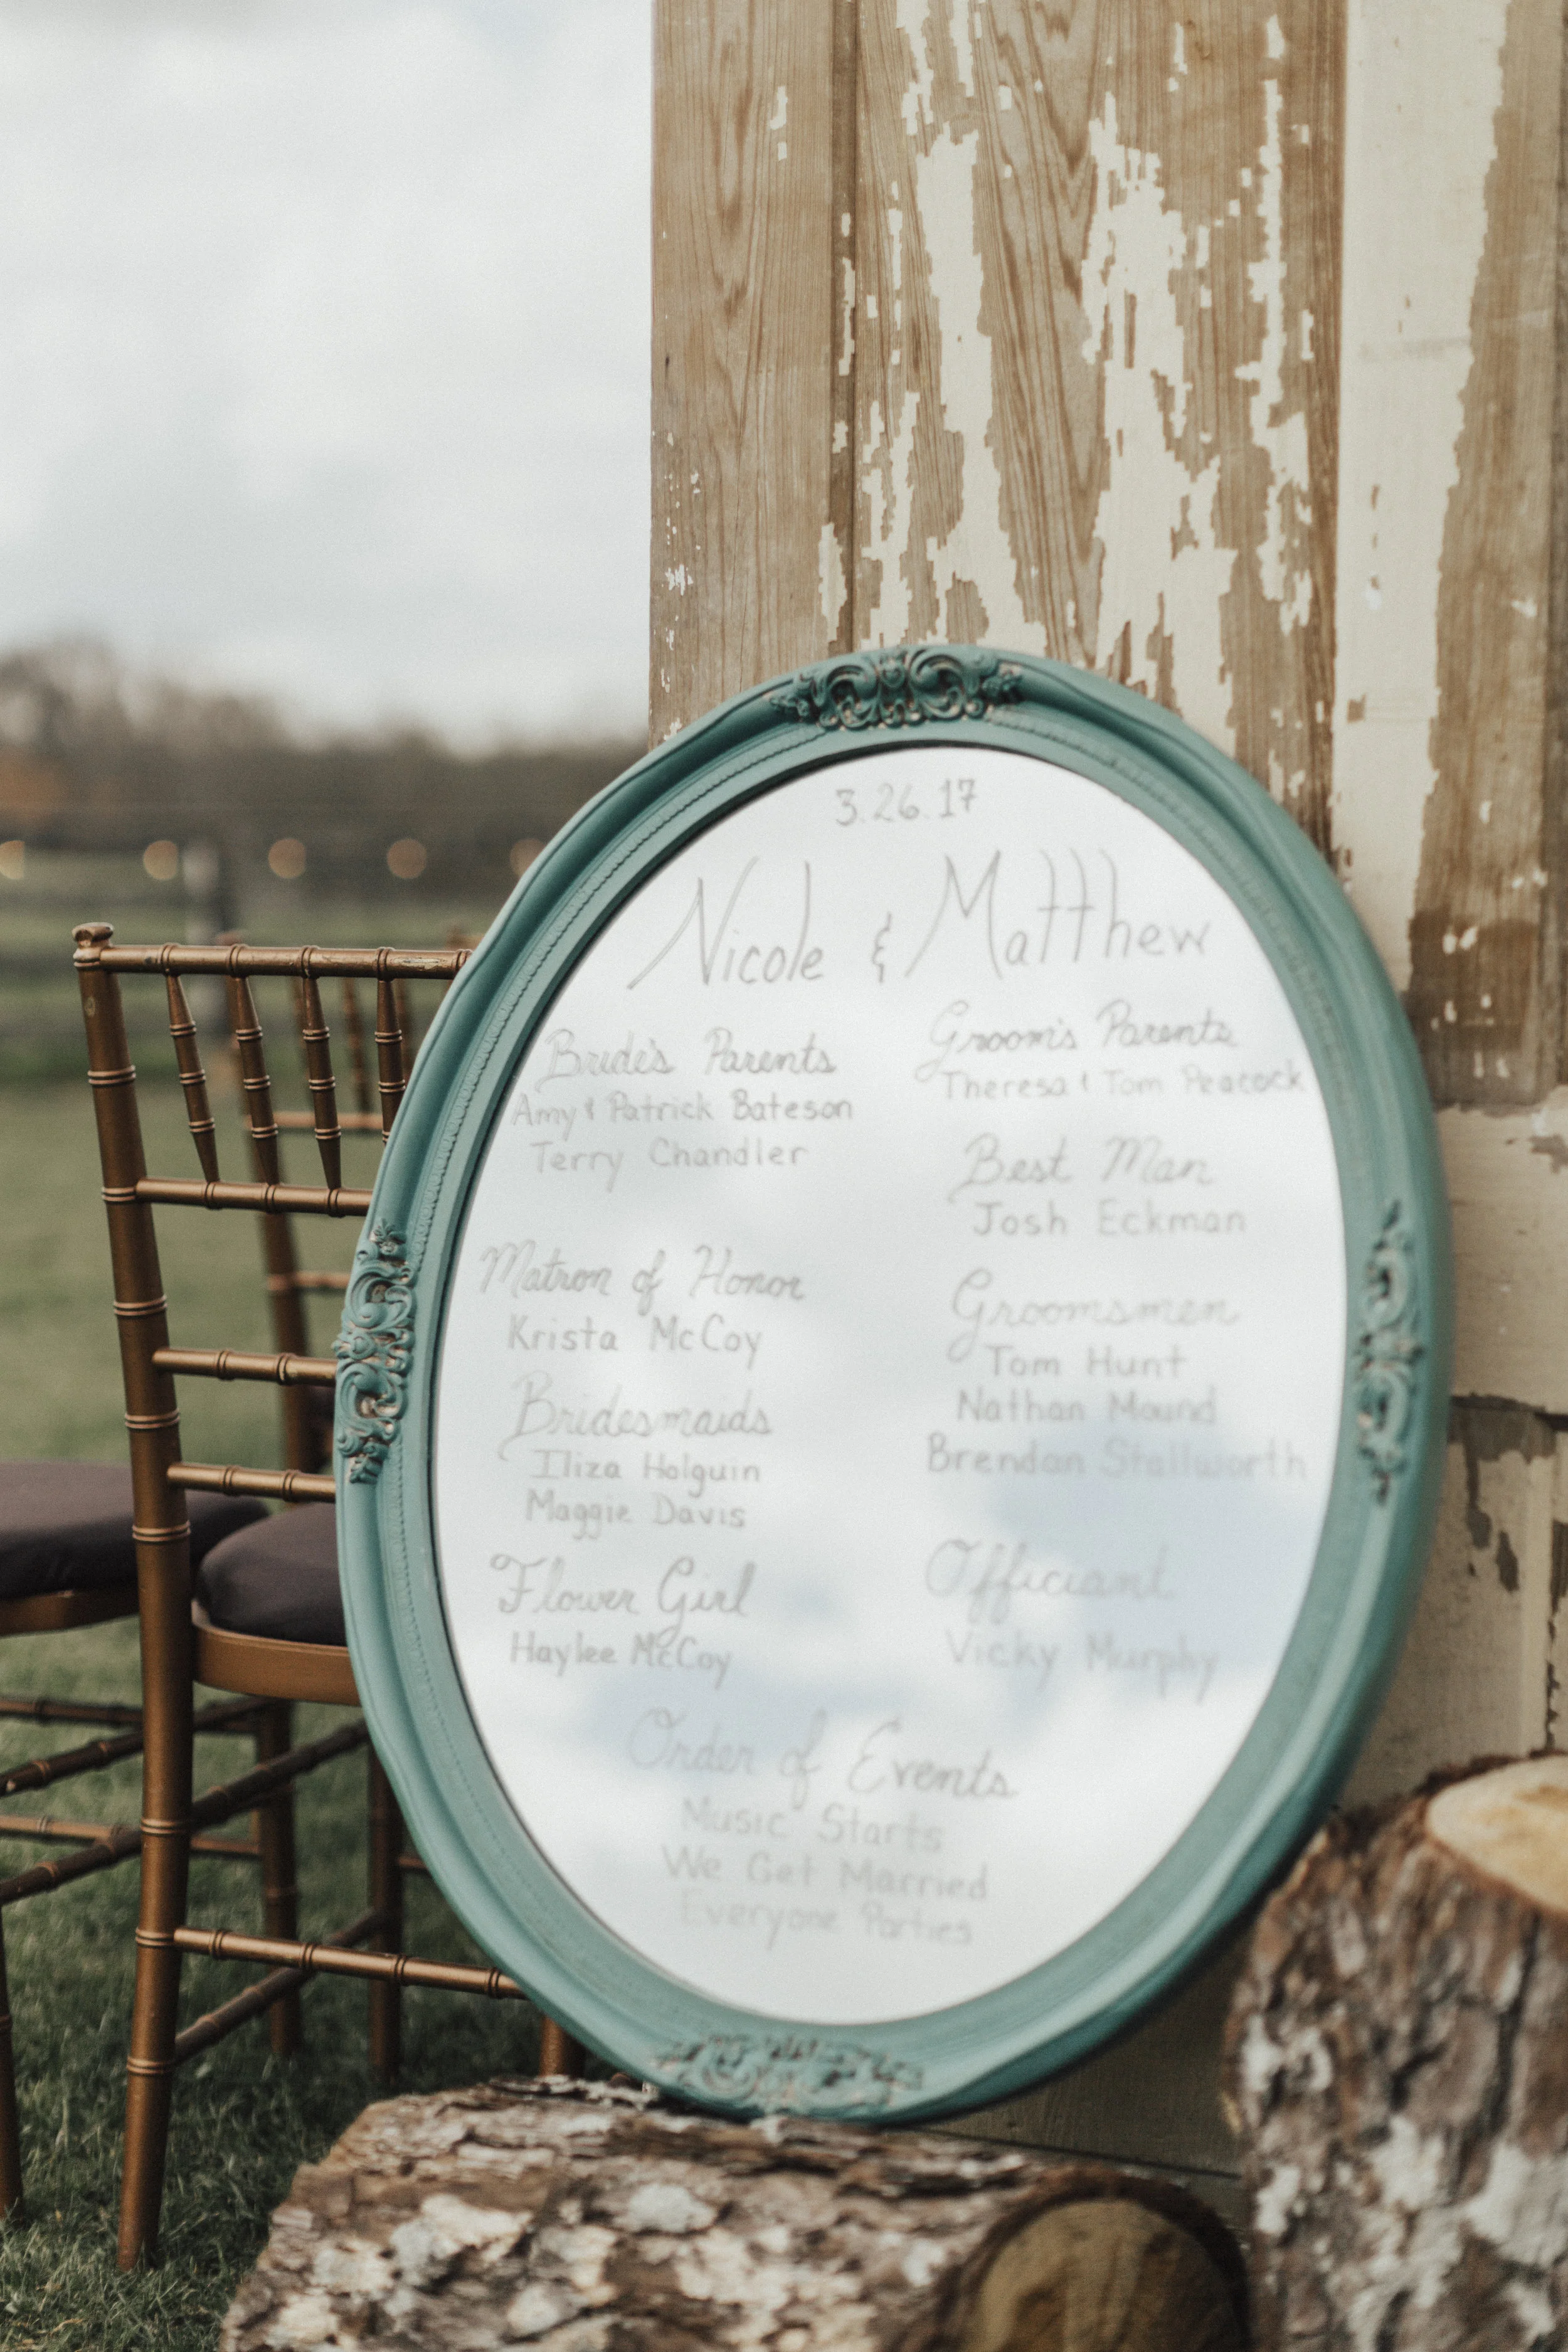 3.26.17
Nicole & Matthew
Bride's Parents
Amy & Patrick Bateson
Terry Chandler
Matron of Honor
Krista McCoy
Bridesmaids
Iliza Holguin
Maggie Davis
Flower Girl
Haylee McCoy
Groom's Parents
Theresa & Tom Peacock
Best Man
Josh Eckman
Groomsmen
Tom Hunt
Nathan Mound
Brendan Stallworth
Officiant
Vicky Murphy
Order of Events
Music Starts
We Get Married
Everyone Parties